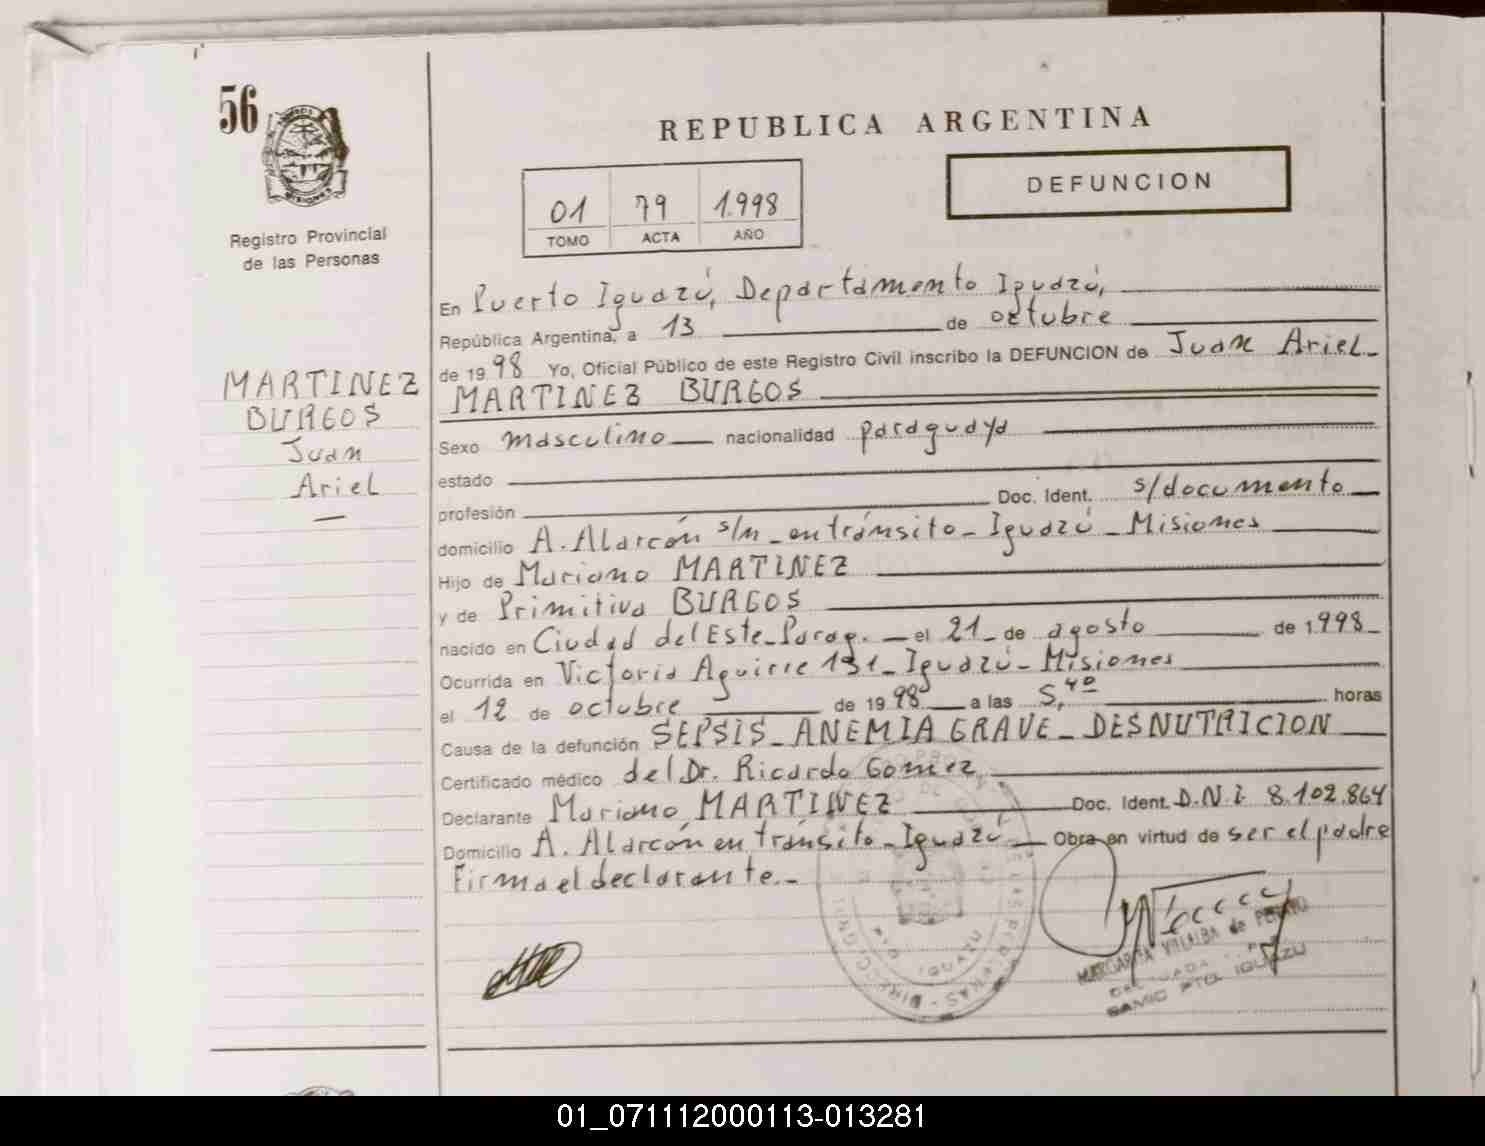 56
MISIONES
Registro Provincial
de las Personas
MARTINEZ
BURGOS
Juan
Ariel
REPUBLICA ARGENTINA
DEFUNCION
01 79 1.998
TOMO ACTA AÑO
En Puerto Iguazú, Departamento Iguazú,
República Argentina, a 13 de octubre
de 1998 Yo, Oficial Público de este Registro Civil inscribo la DEFUNCION de Juan Ariel
MARTINEZ BURGOS
Sexo masculino nacionalidad paraguaya
estado
profesión Doc. Ident. s/documento
domicilio A. Alarcón s/n - en tránsito - Iguazú - Misiones
Hijo de Mariano MARTINEZ
y de Primitiva BURGOS
nacido en Ciudad del Este - Parag. - el 21 - de agosto de 1998 -
Ocurrida en Victoria Aguirre 131 - Iguazú - Misiones
el 12 de octubre de 1998 a las 5,40 horas
Causa de la defunción SEPSIS - ANEMIA GRAVE - DESNUTRICION
Certificado médico del Dr. Ricardo Gomez
Declarante Mariano MARTINEZ Doc. Ident. D.N.I 8.102.864
Domicilio A. Alarcón en tránsito - Iguazú - Obra en virtud de ser el padre
Firma el declarante.-
MARGARITA VILLALBA de
SAMIC PTO. IGUAZU
01_071112000113-013281